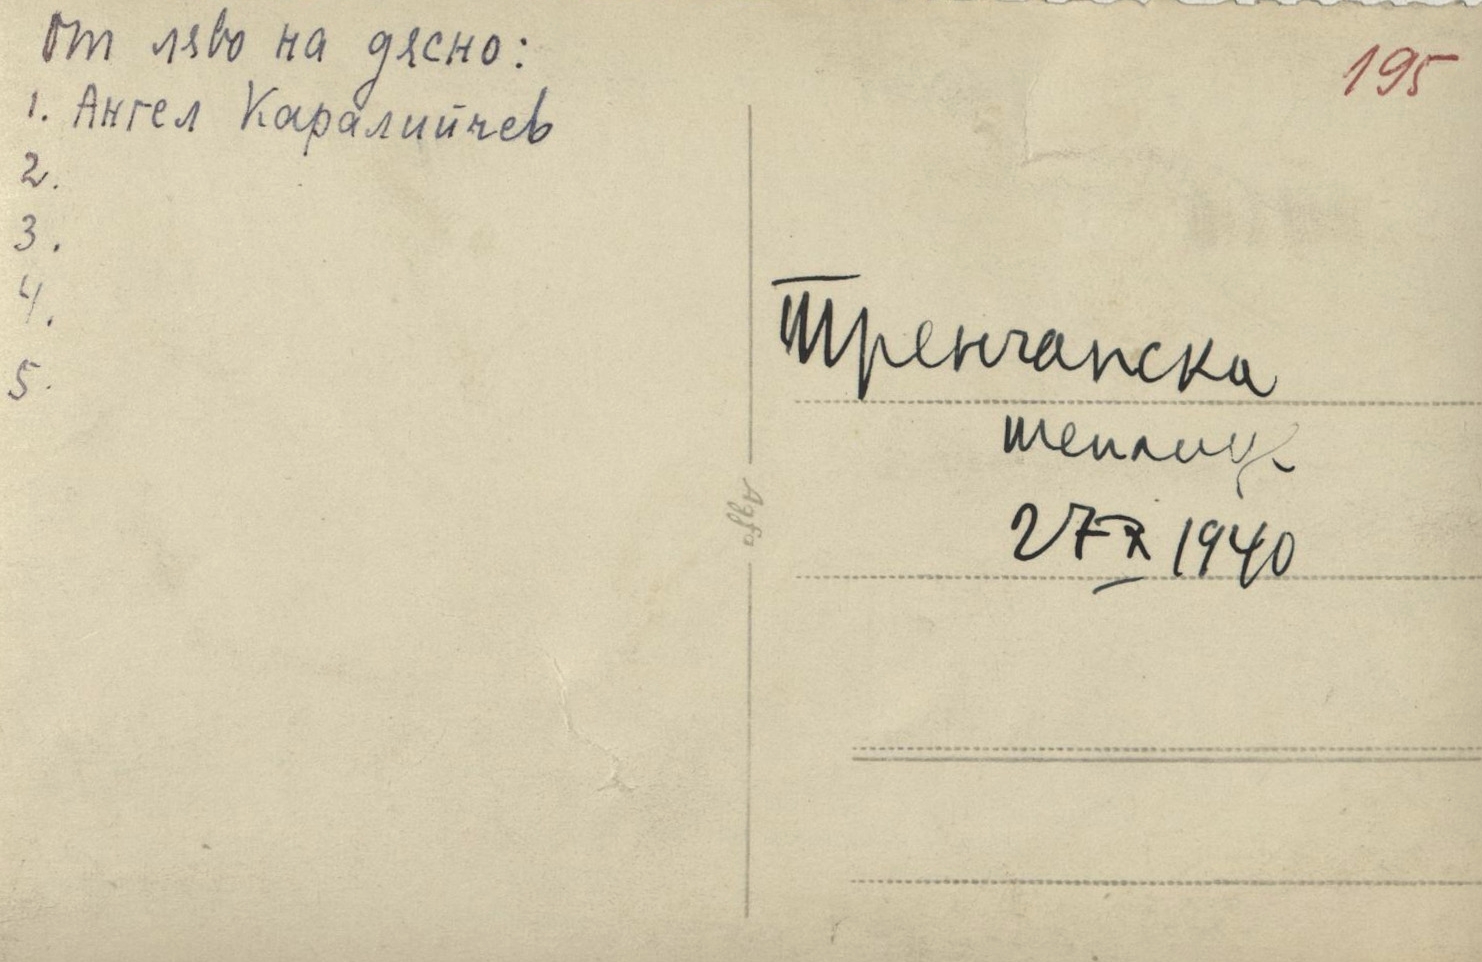 От лево на дясно:
1. Ангел Каралийчев
2.
3.
4.
5.
195
Тренчанска
теплиц
27 X 1940
Agfa